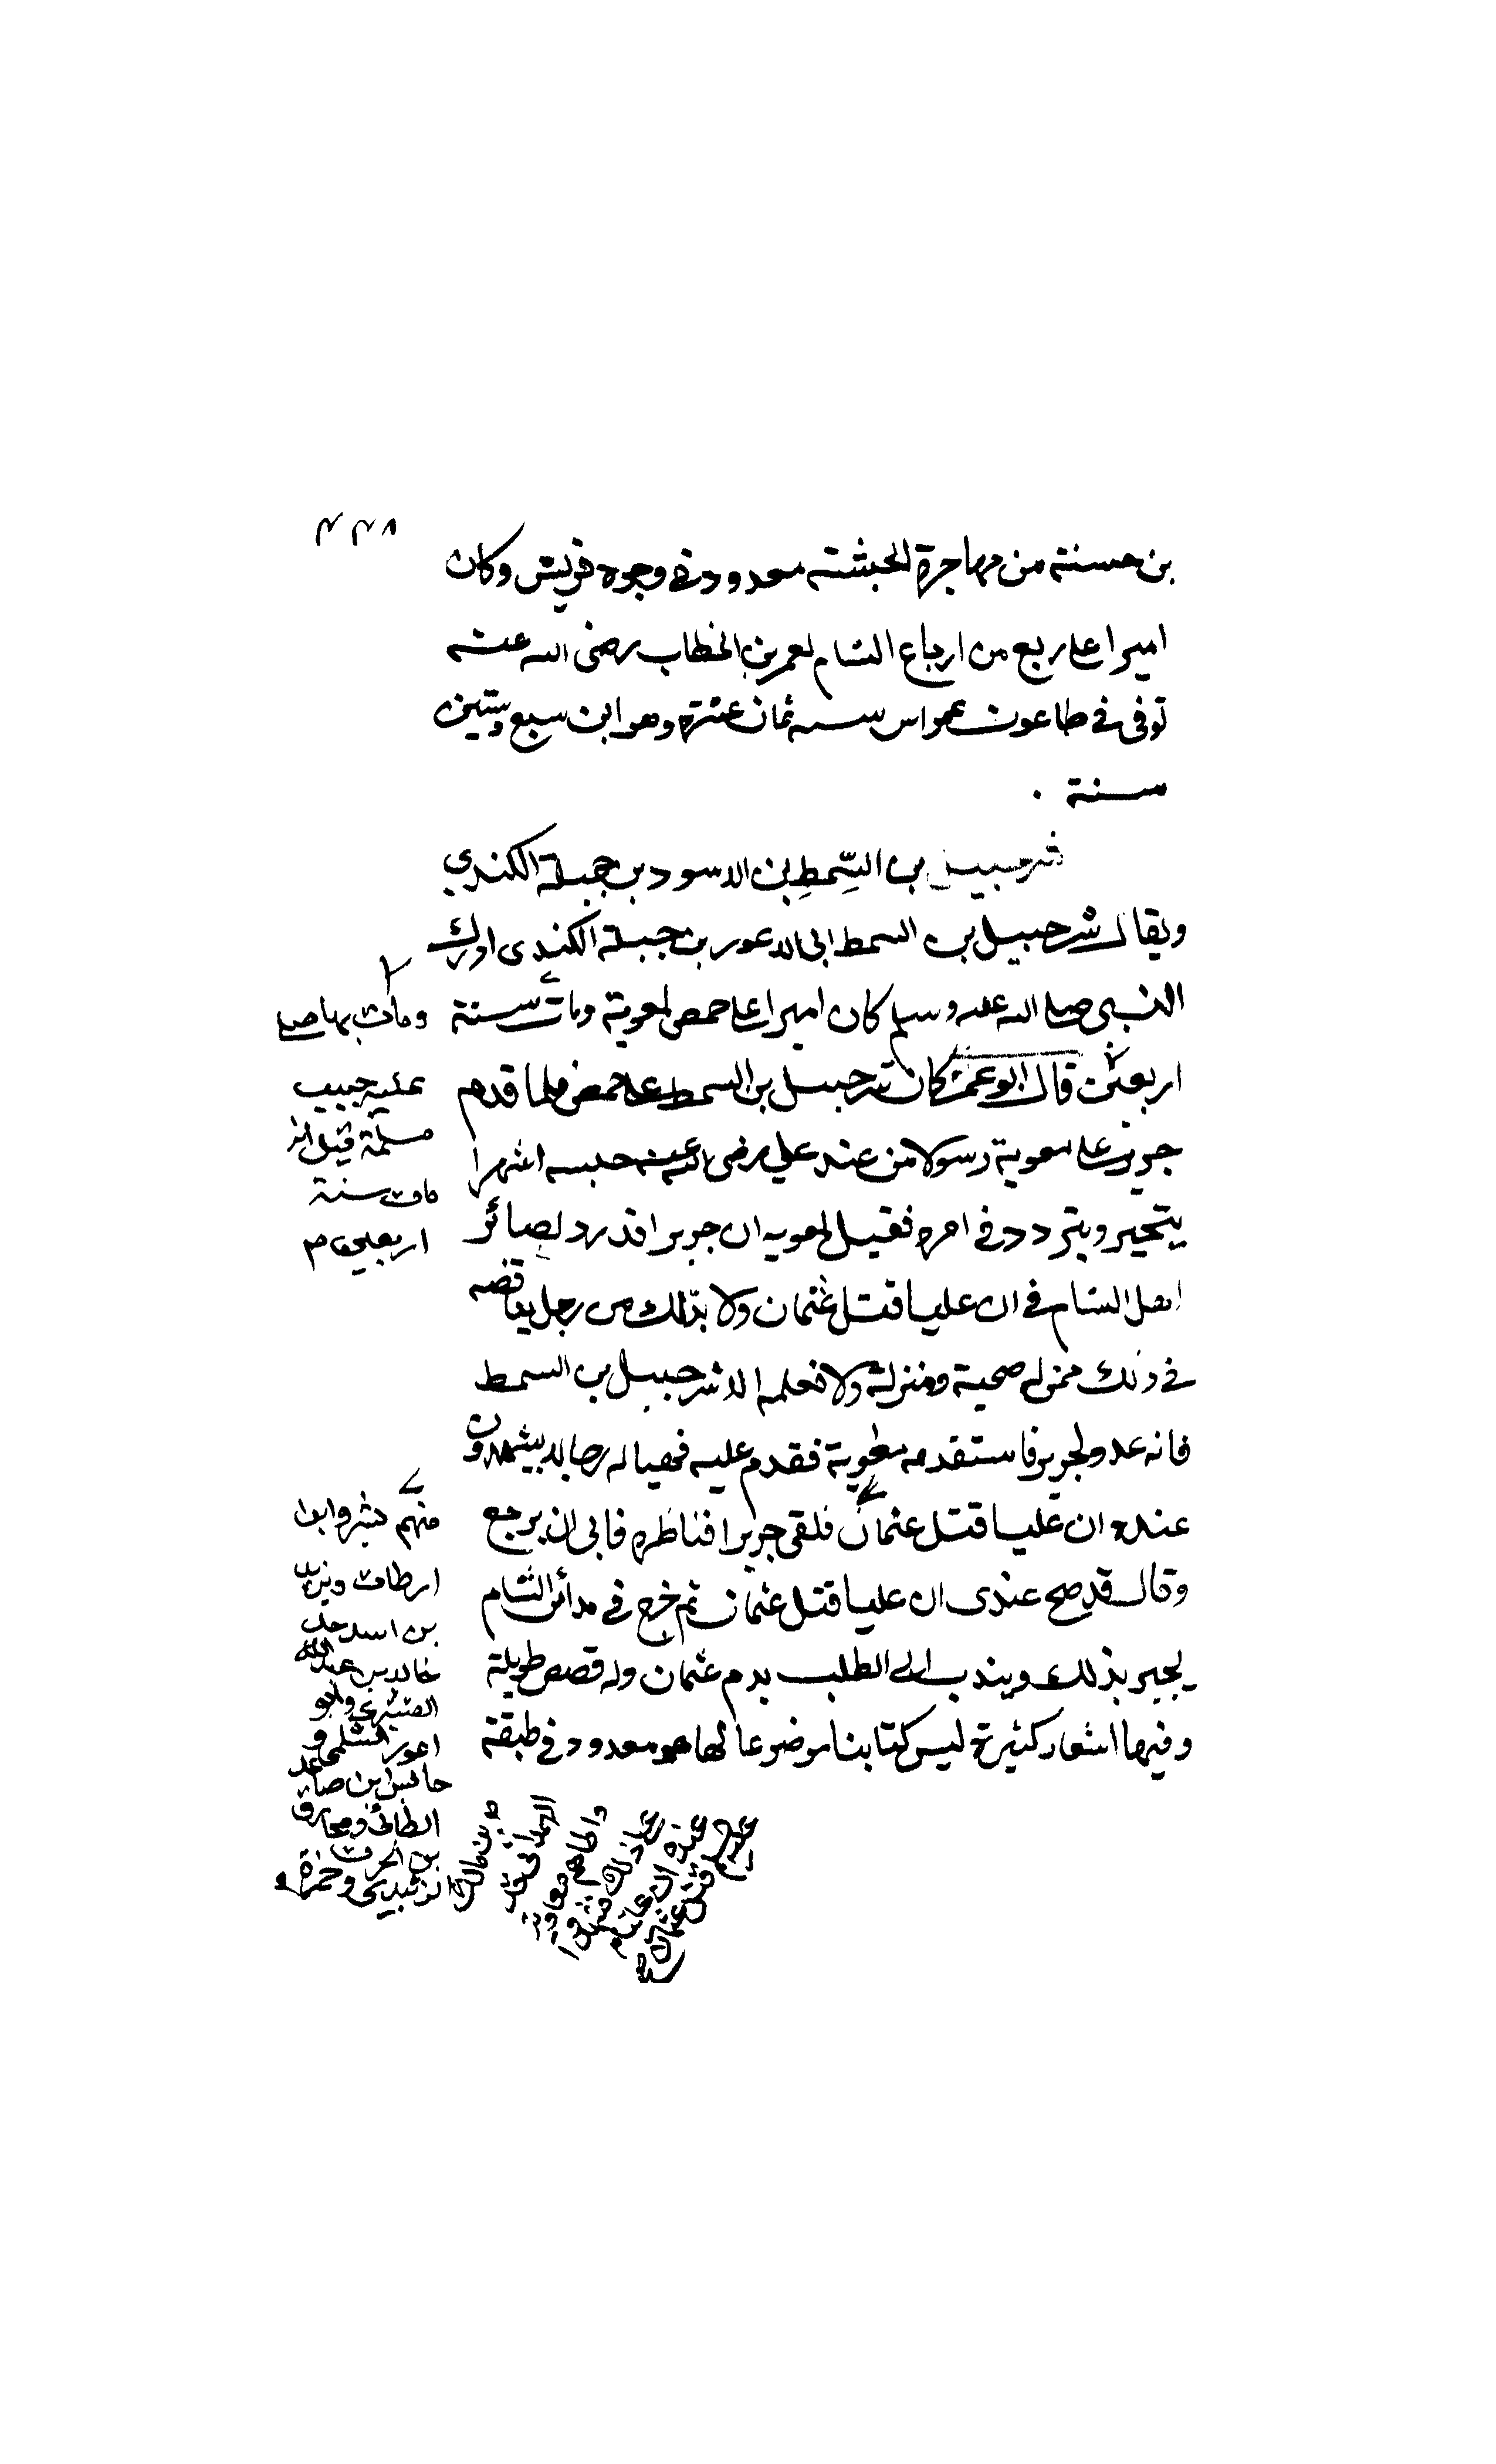 ٤٣٨
بن حسنة من مهاجرة الحبشة معدود في وجوه قريش وكان
اميرا على ربع من ارباع الشام لعمر بن الخطاب رضى الله عنه
توفى في طاعون عمواس سنه ثمان عشرة وهو ابن سبع وستين
سنة .
شرحبيل بن السِّمطِ بن الاسود بن جبلة الكندي
ويقال شرحبيل بن السمط ابى الاعور بن جبلة الكندى ادرك
النبى صلى الله عليه وسلم كان اميرا على حمص لمعوية ومات سنة
اربعين قال ابو عمر كان شرحبيل بن السمط على حمص فلما قدم
جرير على معوية رسولا من عند علي رضى الله عنه حبسه اشهرا
يتحير ويتردد في امره فقيل لمعويه ان جريرا قد رد بصائر
اهل الشام في ان عليا قتل عثمان ولا بد لك من رجل يناقضه
في ذلك ممن له صحبة ومنزلة ولا نعلمه الا شرحبيل بن السمط
فانه عدو لجرير فاستقدمه معوية فقدم عليه فهيا له رجالا يشهدون
عنده ان عليا قتل عثمان فلقى جريرا فناظره فابى ان يرجع
وقال قد صح عندى ان عليا قتل عثمان ثم خرج في مدائن الشام
يخبر بذلك ويندب الى الطلب بدم عثمان وله قصص طويلة
وفيها اشعار كثيرة ليس كتابنا موضوعا لها هو معدود في طبقة
ومات بها صلى
عليه حبيب
مسلمة قيل انه
مات سنة
اربعين
منهم بشر وابن
ارطاة ويزيد
بن اسد جد
خالد بن عبد الله
القشيري وابو
اعور السلمى و
حابس ابن سعد
الطائي ومخارق
بن الحرث
الزبيدى وحمزة
بن مالك
الهمدانى قد
واطاهم معاوية
على ذلك فشهدوا
عنده ان عليا
قتل عثمان